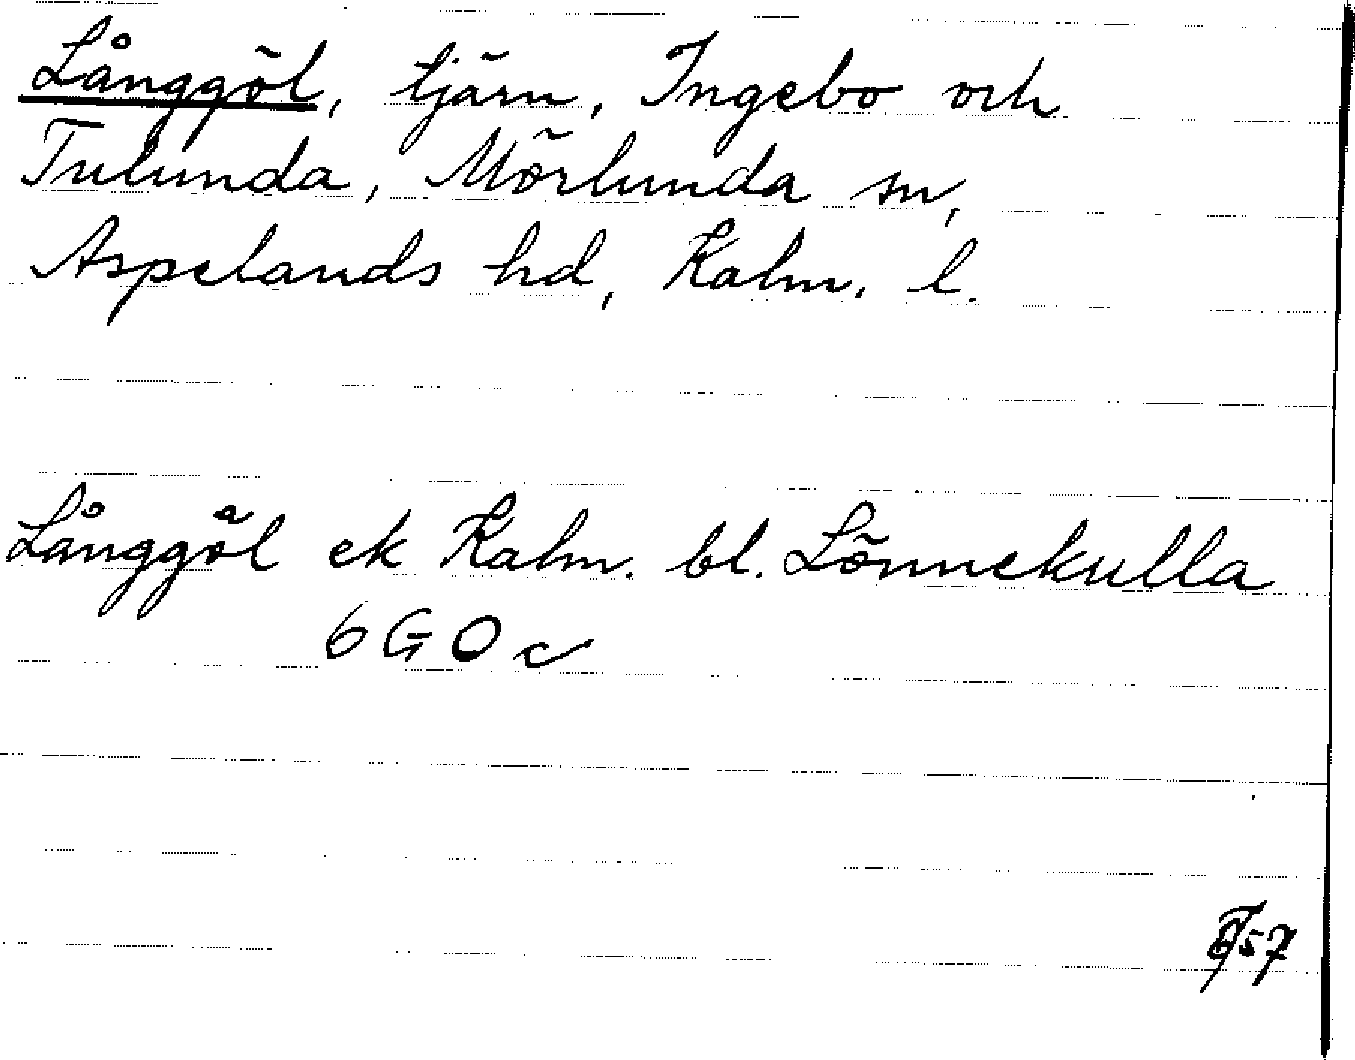 Långgöl, tjärn, Ingebo och
Tulunda, Mörlunda sn,
Aspelands hd, Kalm. l.
Långgöl ek Kalm. bl. Lönnekulla
6 G O c
57